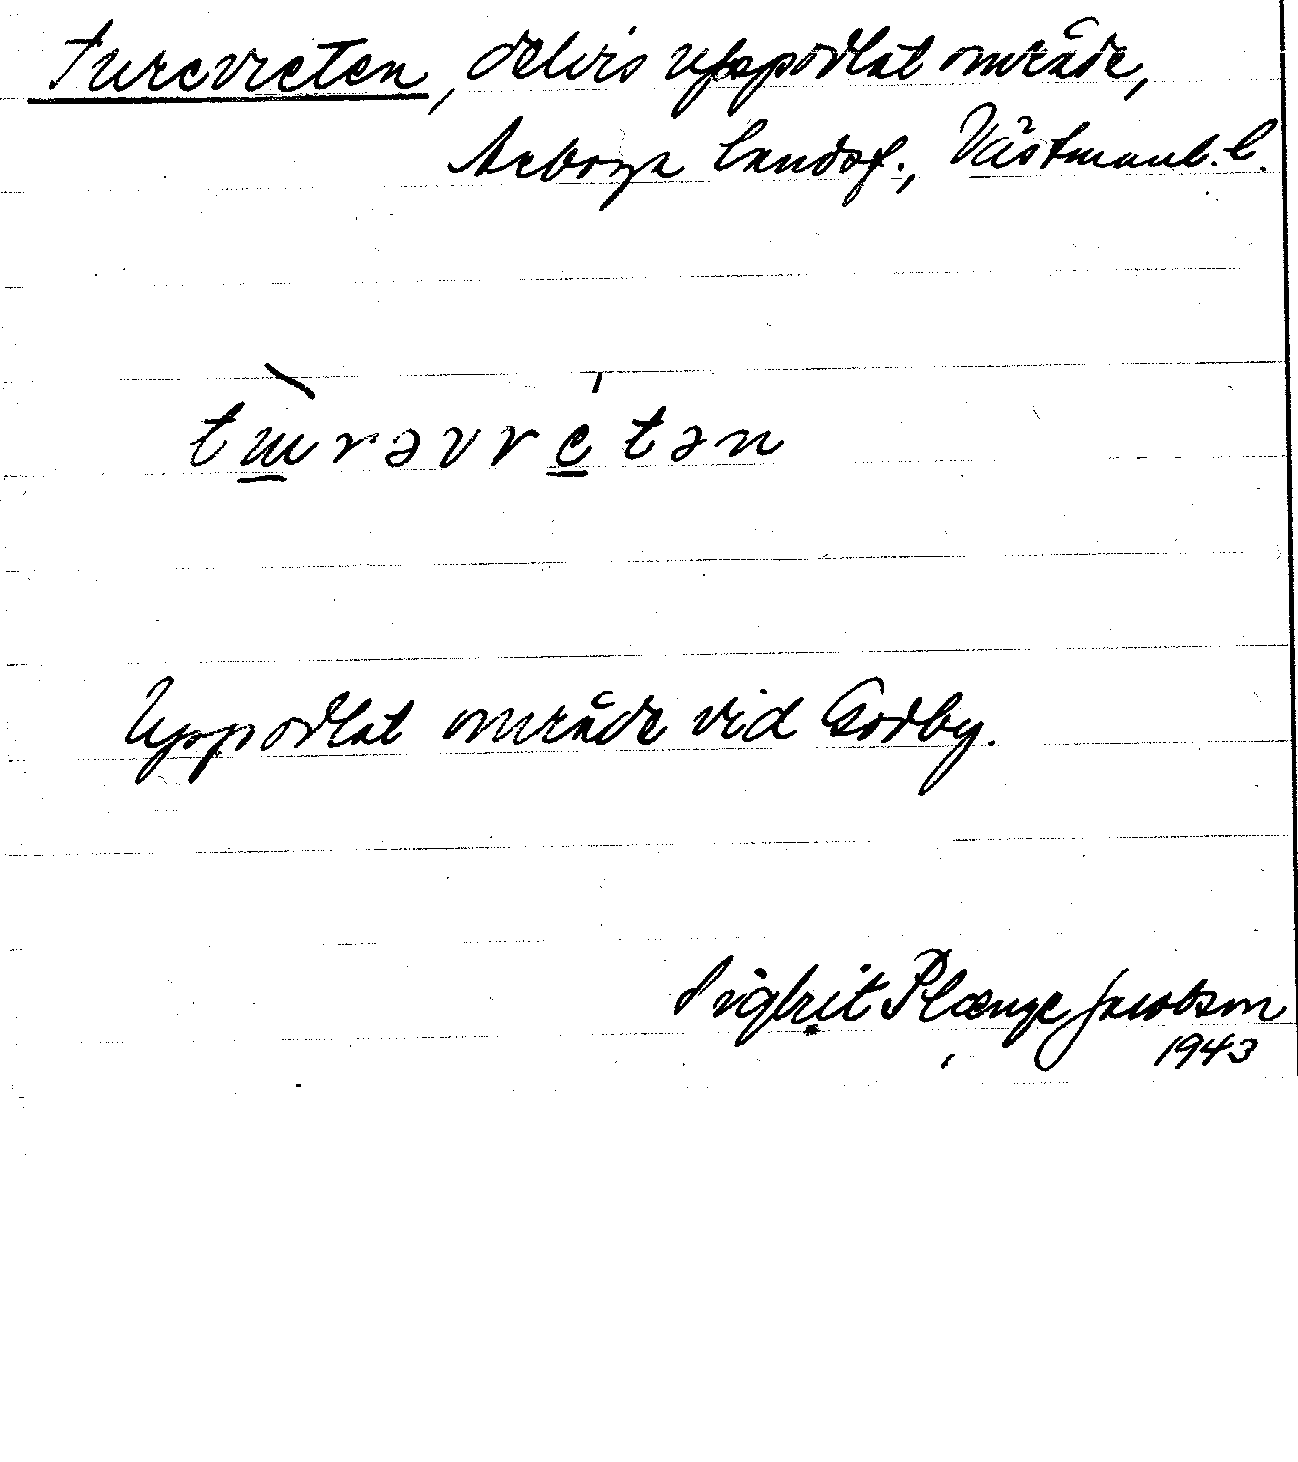 Turevreten, delvis uppodlat område,
Arboga landsf., Västmanl. l.
tɯ̀rəvrétən
Uppodlat område vid Godby.
Sigbrit Plænge Jacobson
1943